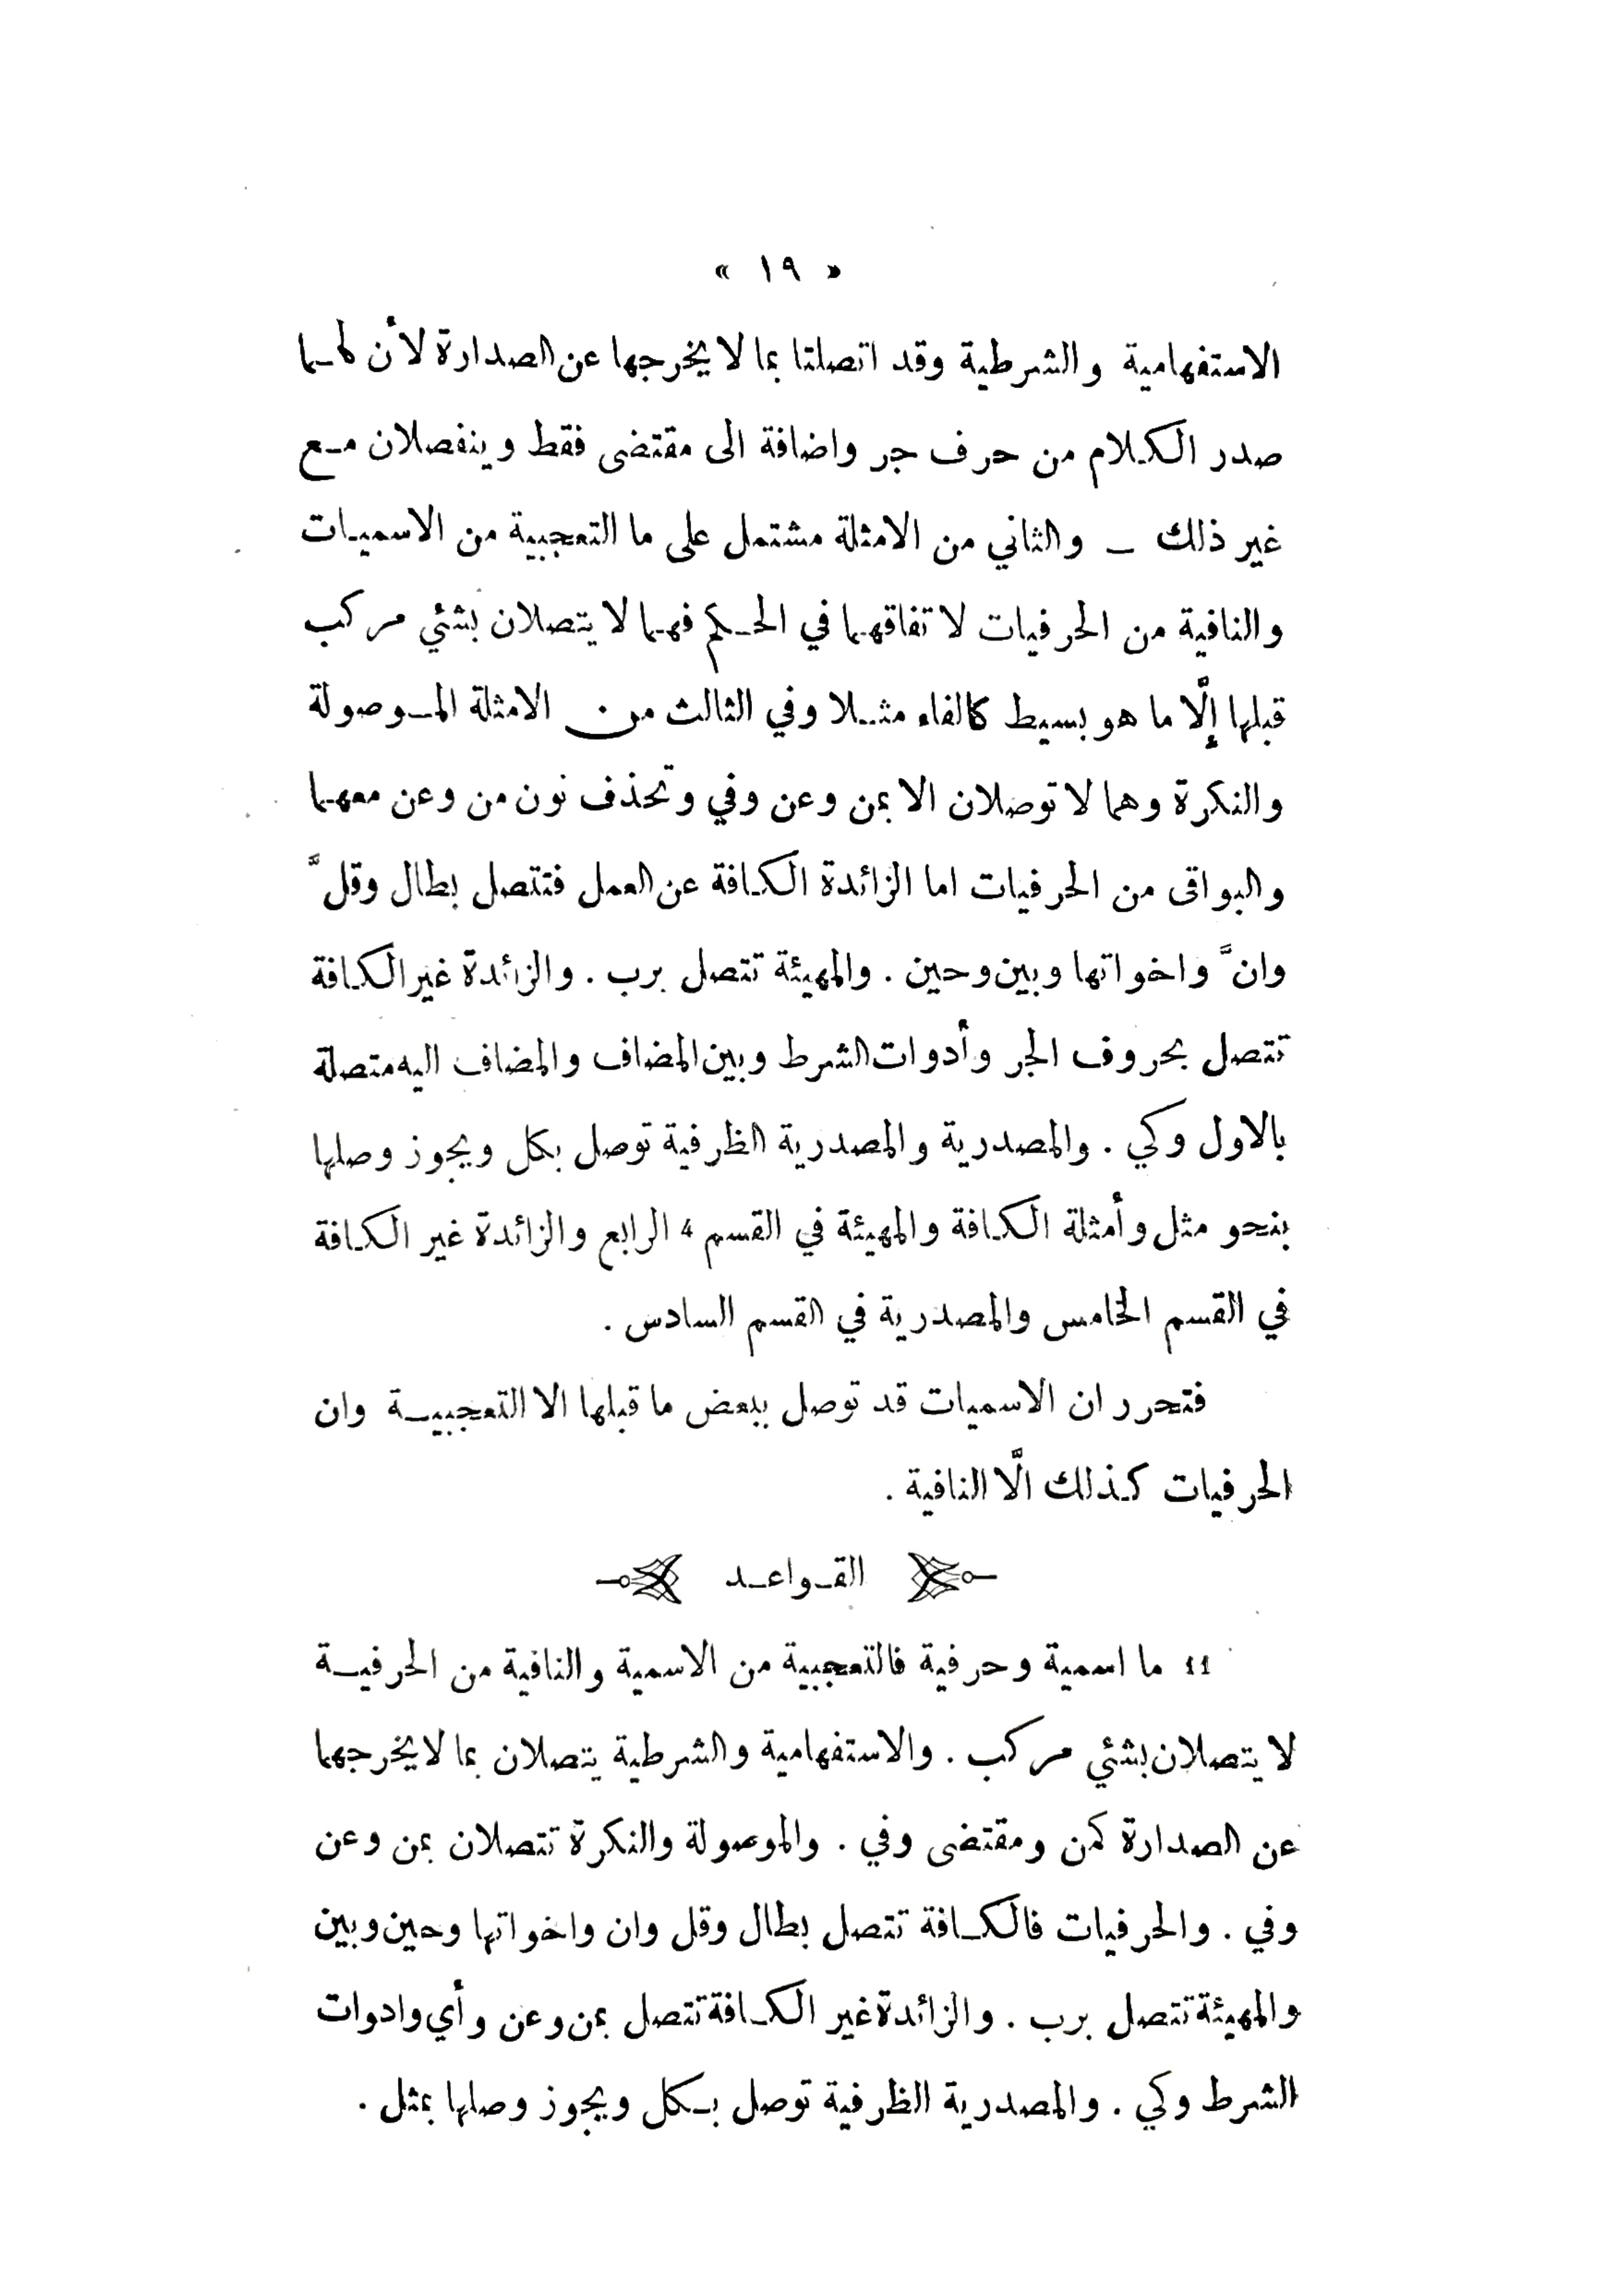 « ١٩ »
الاستفهامية والشرطية وقد اتصلتا بما لا يخرجها عن الصدارة لأن لهما
صدر الكلام من حرف جر واضافة الى مقتضى فقط وينفصلان مع
غير ذلك – والثاني من الامثلة مشتمل على ما التعجبية من الاسميات
والنافية من الحرفيات لاتفاقهما في الحكم فهما لا يتصلان بشئي مركب
قبلها إلّا ما هو بسيط كالفاء مثلا وفي الثالث من الامثلة الموصولة
والنكرة وهما لا توصلان الا بمن وعن وفي وتحذف نون من وعن معهما
والبواقى من الحرفيات اما الزائدة الكافة عن العمل فتتصل بطال وقلَّ
وانَّ واخواتها وبين وحين . والمهيئة تتصل برب . والزائدة غير الكافة
تتصل بحروف الجر وأدوات الشرط وبين المضاف والمضاف اليه متصلة
بالاول وكي . والمصدرية والمصدرية الظرفية توصل بكل ويجوز وصلها
بنحو مثل وأمثلة الكافة والمهيئة في القسم 4 الرابع والزائدة غير الكافة
في القسم الخامس والمصدرية في القسم السادس .
فتحرر ان الاسميات قد توصل ببعض ما قبلها الا التعجبية وان
الحرفيات كذلك الّا النافية .
القواعد
11 ما اسمية وحرفية فالتعجبية من الاسمية والنافية من الحرفية
لا يتصلان بشئي مركب . والاستفهامية والشرطية يتصلان بما لا يخرجهما
عن الصدارة كمن ومقتضى وفي . والموصولة والنكرة تتصلان بمن وعن
وفي . والحرفيات فالكافة تتصل بطال وقل وان واخواتها وحين وبين
والمهيئة تتصل برب . والزائدة غير الكافة تتصل بمن وعن وأي وادوات
الشرط وكي . والمصدرية الظرفية توصل بكل ويجوز وصلها بمثل .